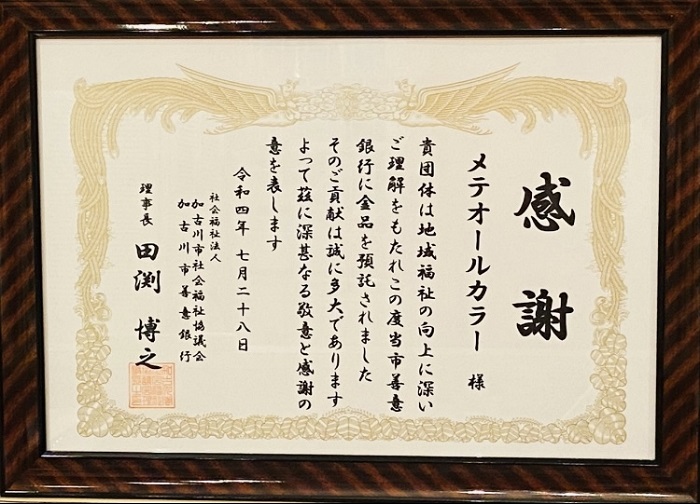 感謝
メテオールカラー 様
貴団体は地域福祉の向上に深い
ご理解をもたれこの度当市善意
銀行に金品を預託されました
そのご貢献は誠に多大であります
よって茲に深甚なる敬意と感謝の
意を表します
令和四年七月二十八日
社会福祉法人
加古川市社会福祉協議会
加古川市善意銀行
理事長 田渕 博之